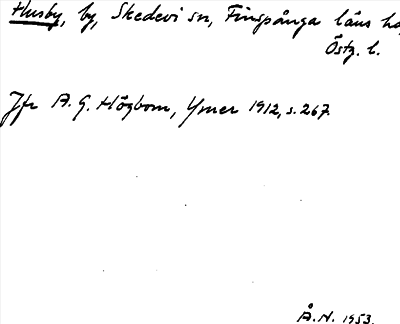 Husby, by, Skedevi sn, Finspånga läns hd,
Östg. l.
Jfr A. G. Högbom, Ymer 1912, s. 267.
Å. N. 1953.